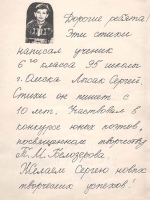 Дорогие ребята!
Эти стихи
написал ученик
6го класса 95 школы
г. Омска Лисак Сергей.
Стихи он пишет с
10 лет. Участвовал в
конкурсе юных поэтов,
посвящённом творчеству
Т. М. Белозёрова.
Желаем Сергею новых
творческих успехов!